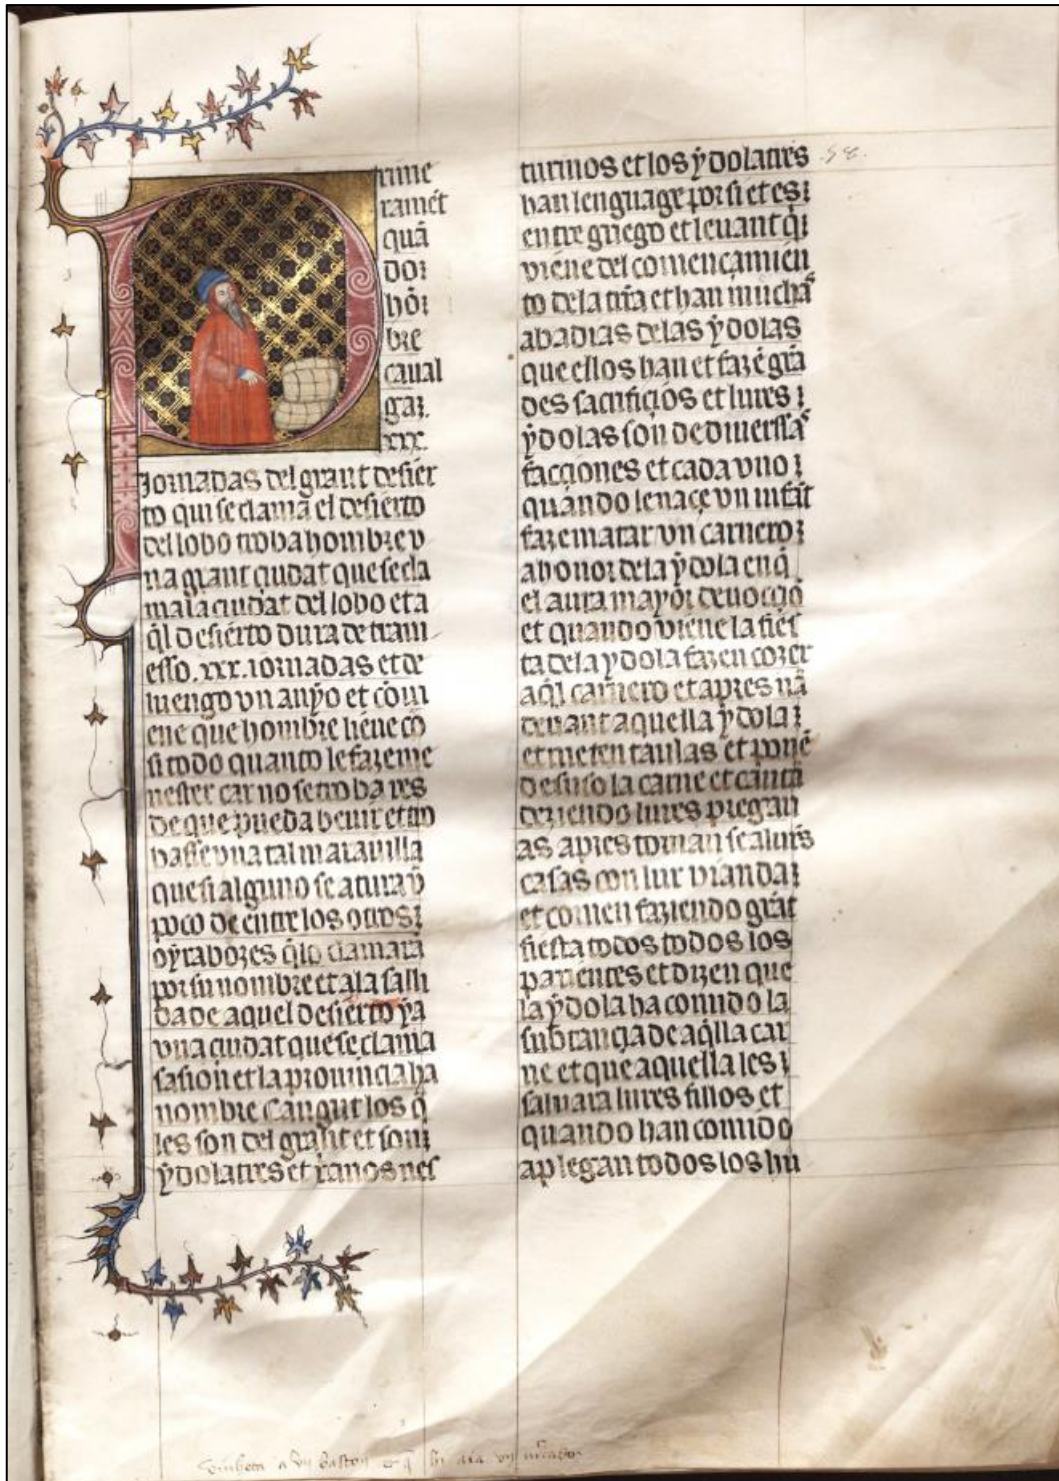 rime
ramẽt
quã
do ꝛ
hõꝛ
bre
caual
gaꝛ.
xxx.
Jornadas del grant desier
to qui se clamã el desierto
del lobo troba hombre v
na grant ciudat que se cla
ma la ciudat del lobo et a
q̃l desierto dura de trau
esso .xxx. iornadas et de
luengo vn anyo et cõui
ene que hombre lieue cõ
si todo quanto le faze me
nester car no se troba res
de que pueda beuir et tro
basse vna tal marauilla
que si alguno se atura ṽ
poco de entre los otros ꝛ
oyra bozes q̃lo clamarã
por su nombre et ala salli
da de aquel desierto ya
vna ciudat que se clama
sasion et la prouincia ha
nombre Cangut los q̃
les son del grant et son ꝛ
ydolatres et xr̃anos nes
turinos et los ydolatrs̃ .58.
han lenguage por si et es ꝛ
entre griego et leuant q̃ꝛ
viene del comencamien
to dela tr̃ra et han muchas̃
abadias delas ydolas
que ellos han et fazẽ grã
des sacrificios et lures ꝛ
ydolas son de diuerssas̃
facciones et cada vno ꝛ
quando le naçe vn infãt
faze matar vn carnero ꝛ
ahonor dela ydola en q̃
el aura mayor deuociõ
et quando viene la fies
ta dela ydola fazen cozer
aq̃l carnero et apres uã
deuant aquella ydola ꝛ
et meten taulas et ponẽ
desuso la carne et cantã
deziendo lures pregari
as apres tornan se alurs̃
casas con lur vianda ꝛ
et comen faziendo grãt
fiesta todos todos los
parientes et dizen que
la ydola ha comido la
substançia de aq̃lla car
ne et que aquella les ꝛ
saluara lures fillos et
quando han comido
aplegan todos los hu